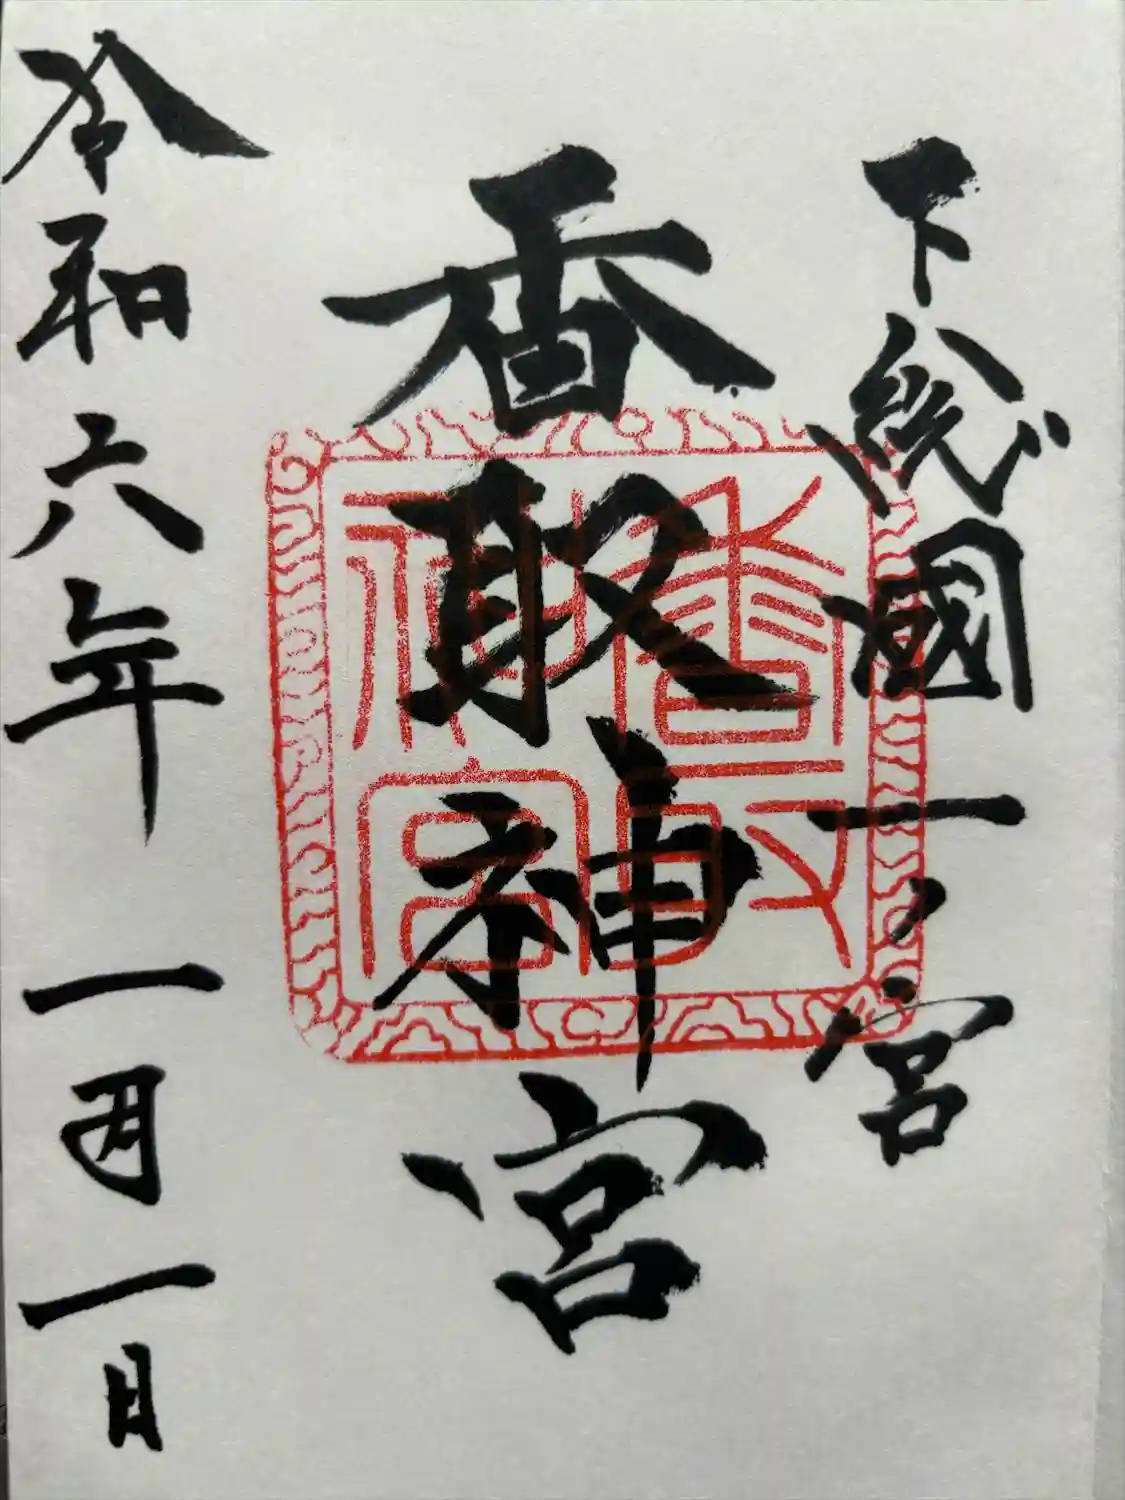 下総國一ノ宮
香取神宮
香取神宮
令和六年一月一日